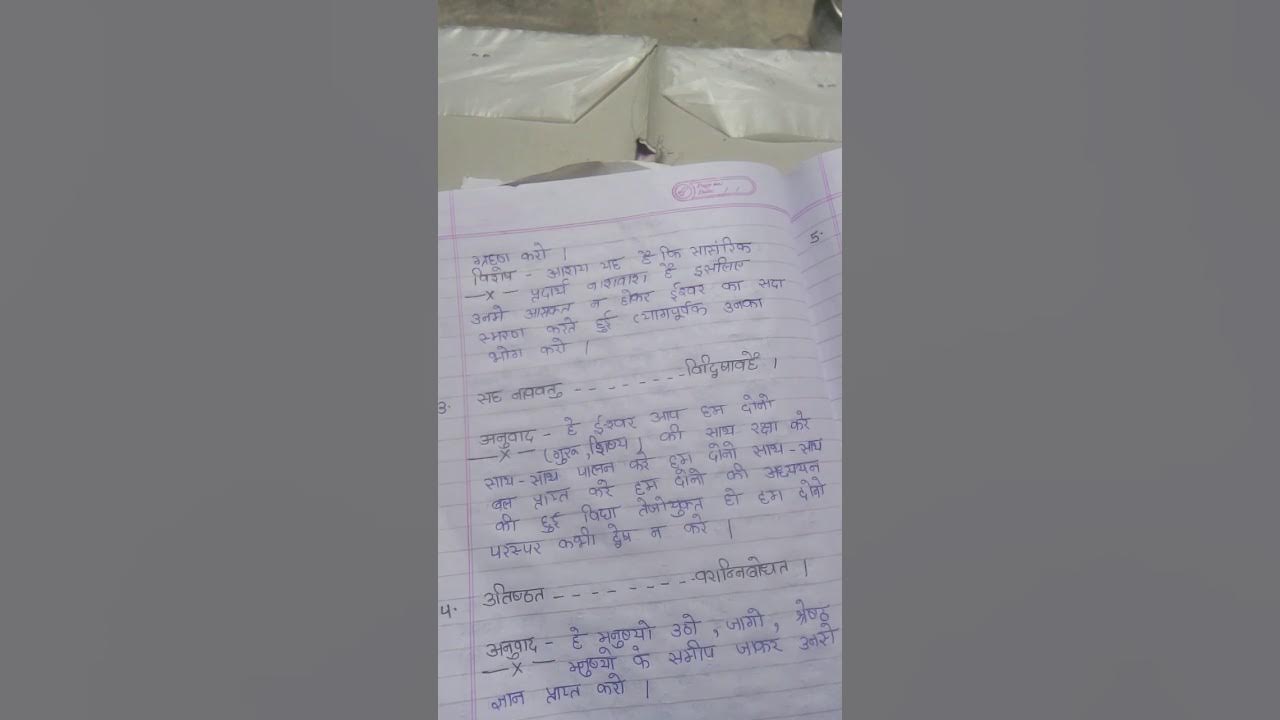 ग्रहण करो ।
विशेष - आशय यह है कि सासंरिक
—x— प्रदार्थ नाशवाश है इसलिए
उनमे आसक्त न होकर ईश्वर का सदा
स्मरण करते हुई त्यागपूर्वक उनका
भोग करो ।
3. सह नाववतु - - - - - - - - विद्विषावहै ।
अनुवाद - हे ईश्वर आप हम दोनो
—x— (गुरू, शिष्य) की साथ रक्षा करे
साथ-साथ पालन करे हम दोनो साथ-साथ
बल प्राप्त करे हम दोनो की अध्ययन
की हुई विद्या तेजोयुक्त हो हम दोनो
परस्पर कभी द्वेष न करे ।
4. उतिष्ठत - - - - - - - - - वरान्निबोधत ।
अनुवाद - हे मनुष्यो उठो, जागो, श्रेष्ठ
—x— मनुष्यो के समीप जाकर उनसे
ज्ञान प्राप्त करो ।
5.